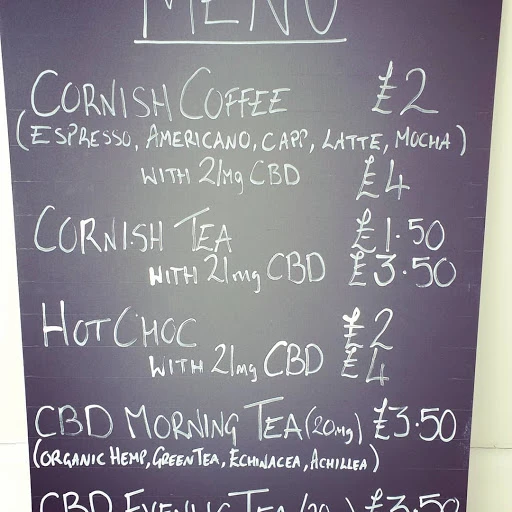 MENU
CORNISH COFFEE £2
(ESPRESSO, AMERICANO, CAPP, LATTE, MOCHA)
WITH 21mg CBD £4
CORNISH TEA £1.50
WITH 21mg CBD £3.50
HOT CHOC £2
WITH 21mg CBD £4
CBD MORNING TEA (20mg) £3.50
(ORGANIC HEMP, GREEN TEA, ECHINACEA, ACHILLEA)
CBD EVENING TEA (20mg) £3.50